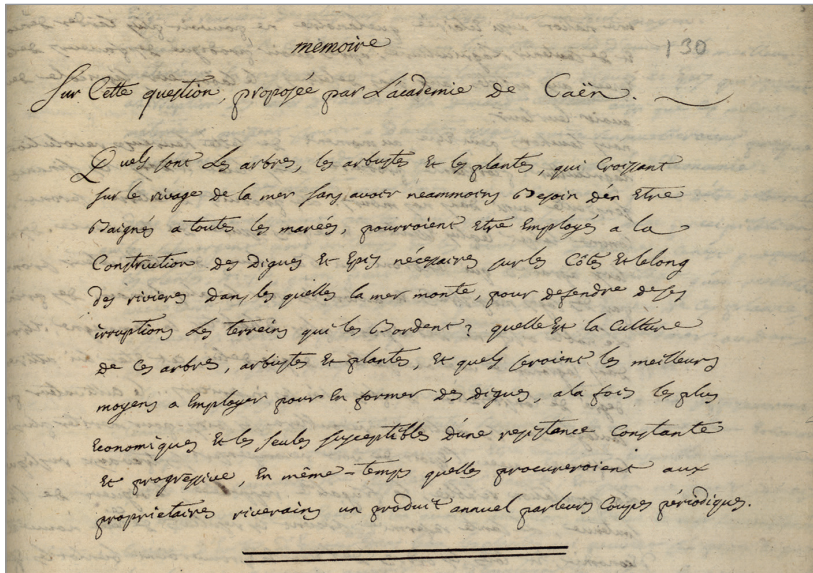 memoire
130
Sur Cette question, proposée par L'academie de Caën.
Quels sont Les arbres, les arbustes Et les plantes, qui Croissant
sur le rivage de la mer sans avoir neammoins Besoin d'en Etre
Baignés a toutes les marées, pourroient Etre Employés a la
Construction des Digues Et Epis nécessaires sur les Côtes Et le long
des rivieres Dans les quelles la mer monte, pour defendre de ses
irruptions Les terreins qui les Bordent? quelle Est la Culture
de Ces arbres, arbustes Et plantes, Et quels seroient les meilleurs
moyens a Employer pour En former des digues, a la fois les plus
Economiques Et les seules susceptibles d'une resistance Constante
Et progressive, En même-temps qu'elles procureroient aux
proprietaires riverains un produit annuel par leurs Coupes périodiques.